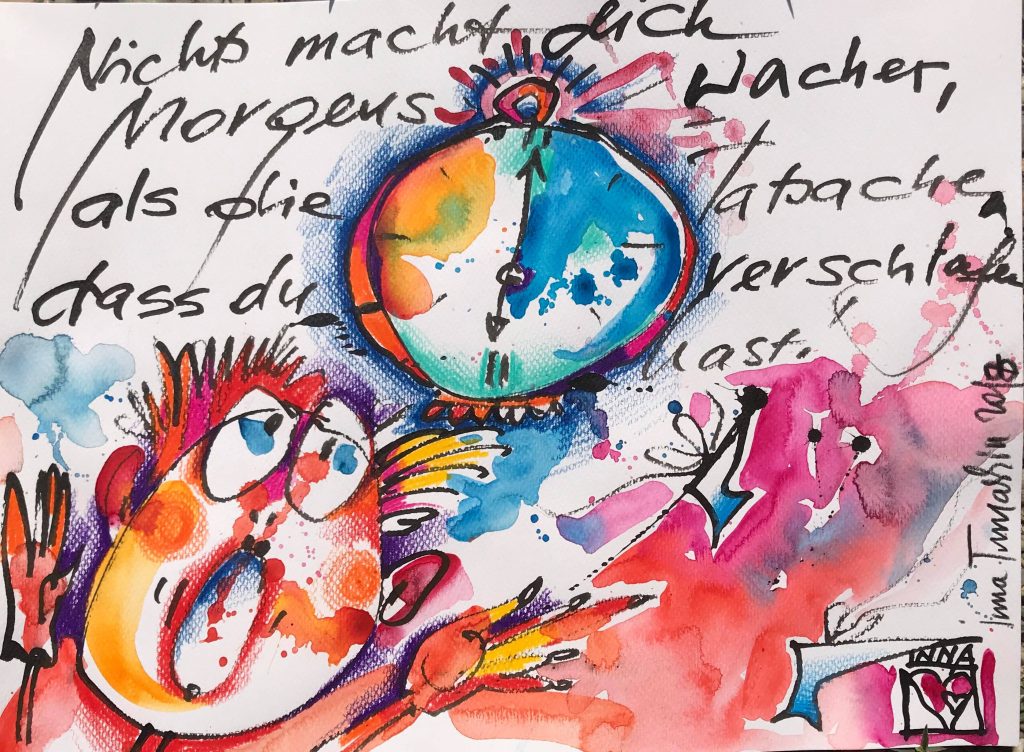 Nichts macht dich
Morgens wacher,
als die Tatsache,
dass du verschlafen
hast.
Inna Timashin
INNA